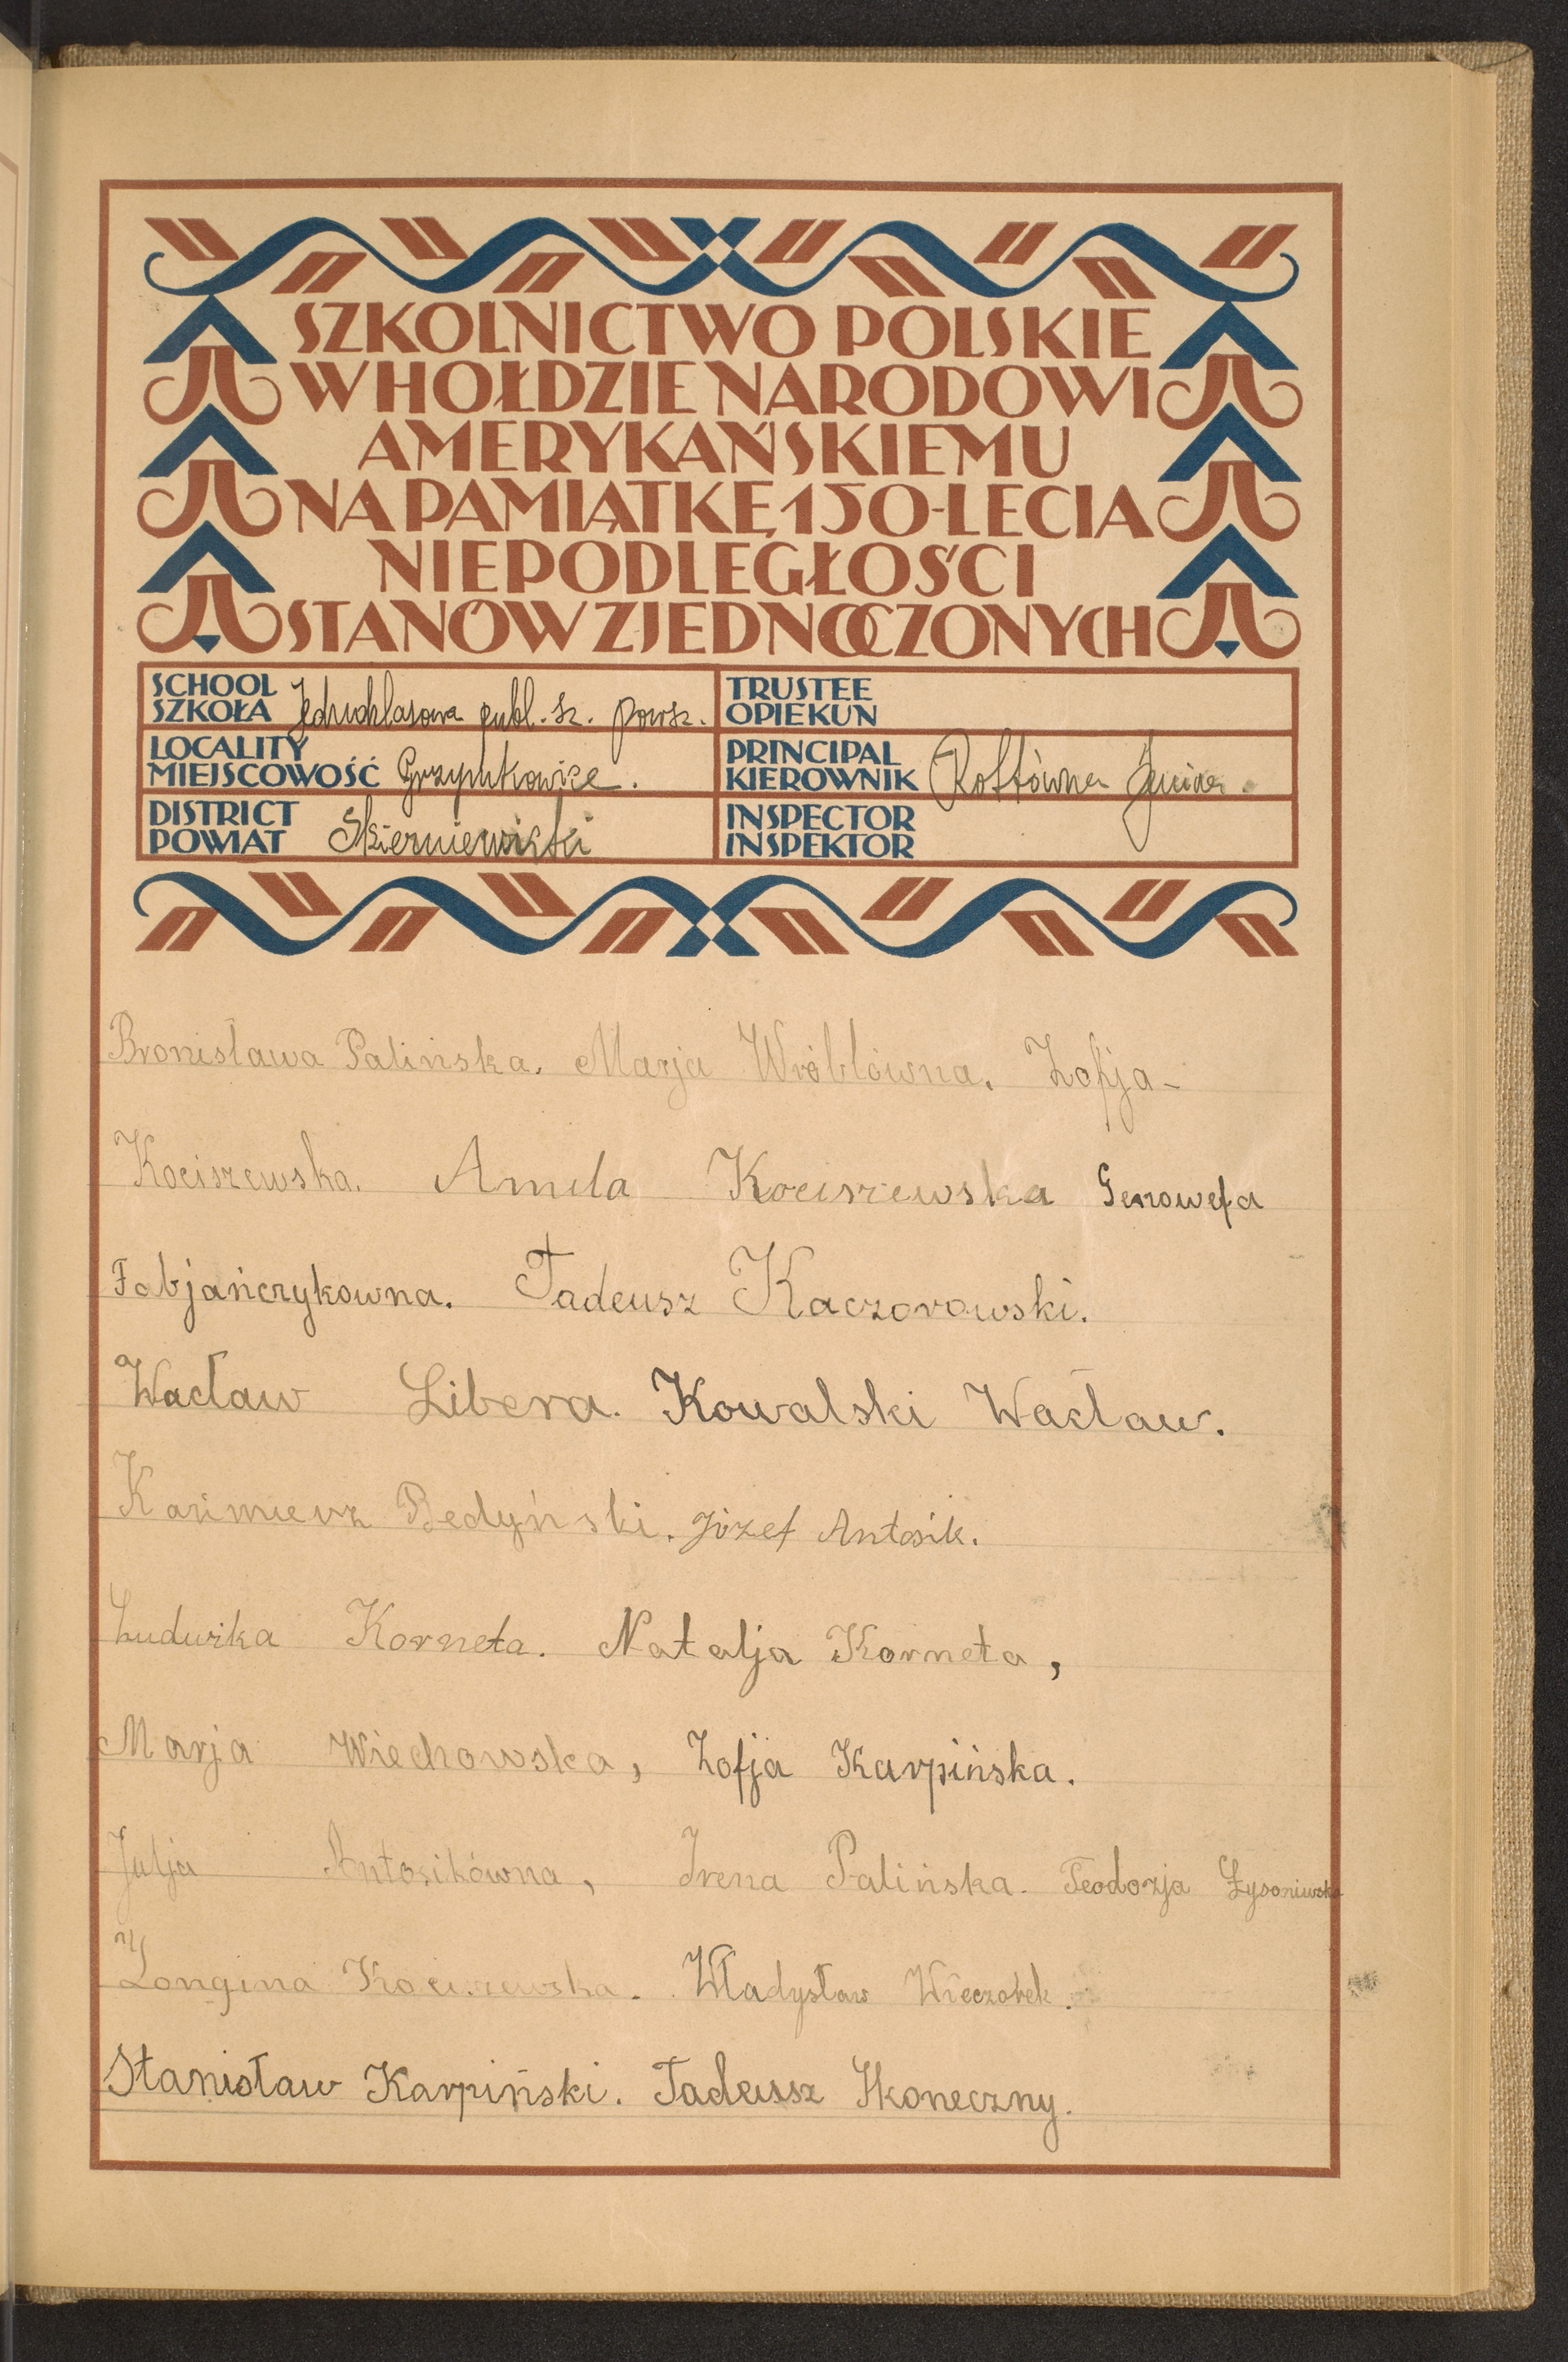 SZKOLNICTWO POLSKIE
W HOŁDZIE NARODOWI
AMERYKAŃSKIEMU
NA PAMIĄTKĘ 150-LECIA
NIEPODLEGŁOŚCI
STANÓW ZJEDNOCZONYCH
SCHOOL
SZKOŁA Jednoklasowa publ. sz. powsz.
TRUSTEE
OPIEKUN
LOCALITY
MIEJSCOWOŚĆ
PRINCIPAL
KIEROWNIK
DISTRICT
POWIAT Skierniewicki
INSPECTOR
INSPEKTOR
Bronisława Palińska. Marja Wróblówna. Zofja-
Kociszewska. Amila Kociszewska Genowefa
Fabjańczykowna. Tadeusz Kaczorowski.
Wacław Libera. Kowalski Wacław.
Kaźmierz Bedyński. Józef Antosik.
Ludwika Korneta. Natalja Korneta,
Marja Wiechowska, Zofja Karpińska.
Julja Antosikówna, Irena Palińska. Teodozja Łysoniewska
Longina Kociszewska. Władysław Wieczorek.
Stanisław Karpiński. Tadeusz Skoneczny.